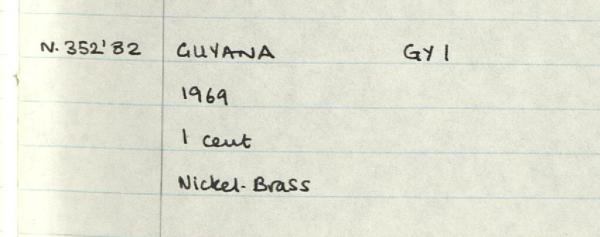 N. 352'82 GUYANA GY1
1969
1 cent
Nickel-Brass